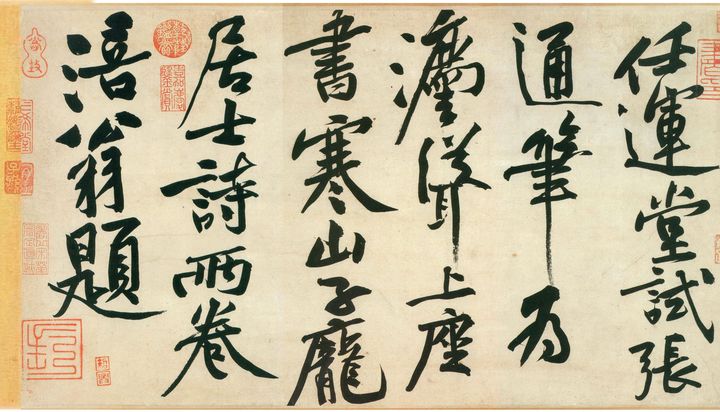 任運堂試張
通筆為
灋聳上座
書寒山子龐
居士詩兩卷
涪翁題